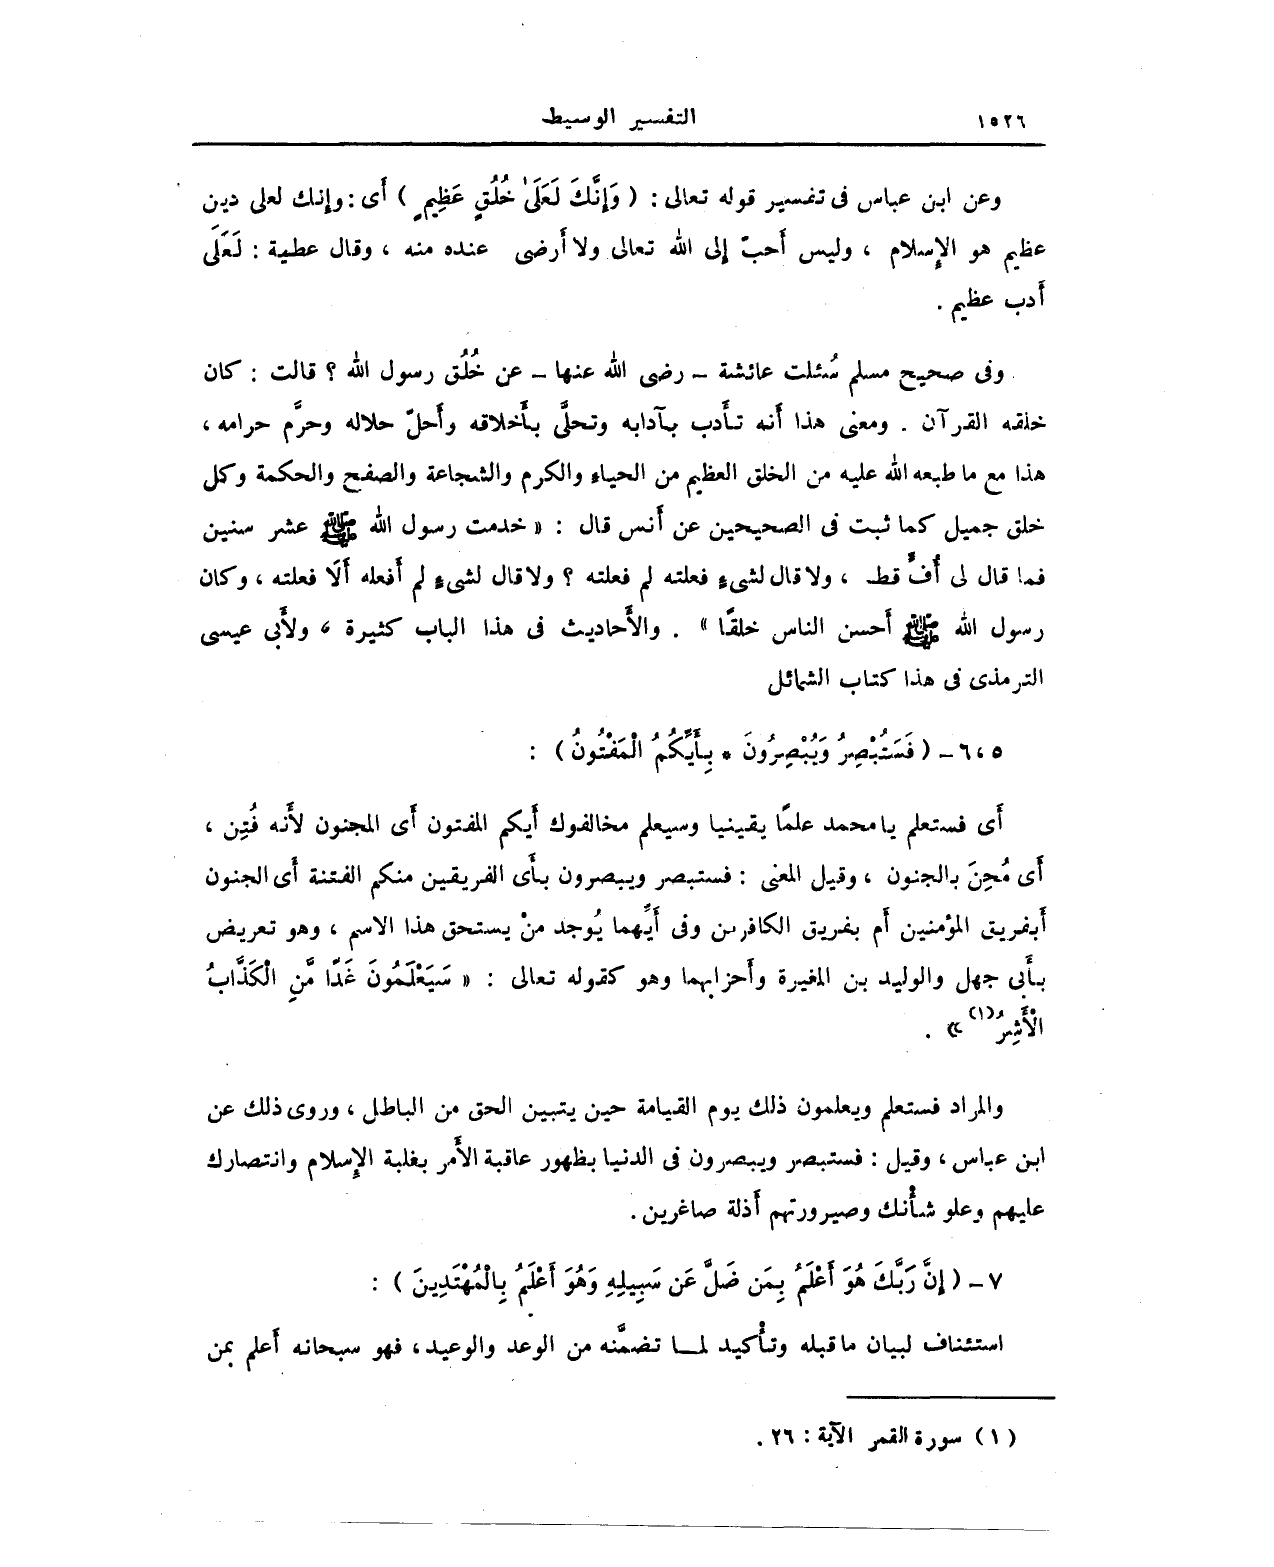 ١٥٢٦
التفسير الوسيط
وعن ابن عباس فى تفسير قوله تعالى : ( وَإِنَّكَ لَعَلَىٰ خُلُقٍ عَظِيمٍ ) أَى : وإنك لعلى دين
عظيم هو الإِسلام ، وليس أَحبّ إلى الله تعالى ولا أَرضى عنده منه ، وقال عطية : لَعَلَى
أَدب عظيم .
وفى صحيح مسلم سُئلت عائشة – رضى الله عنها – عن خُلُق رسول الله ؟ قالت : كان
خلقه القرآن . ومعنى هذا أَنه تأَدب بآدابه وتحلَّى بأَخلاقه وأَحلّ حلاله وحرَّم حرامه ،
هذا مع ما طبعه الله عليه من الخلق العظيم من الحياء والكرم والشجاعة والصفح والحكمة وكل
خلق جميل كما ثبت فى الصحيحين عن أَنس قال : « خدمت رسول الله ﷺ عشر سنين
فما قال لى أُفٍّ قط ، ولا قال لشىءٍ فعلته لم فعلته ؟ ولا قال لشىءٍ لم أَفعله أَلَا فعلته ، وكان
رسول الله ﷺ أَحسن الناس خلقًا » . والأَحاديث فى هذا الباب كثيرة ، ولأَبى عيسى
الترمذى فى هذا كتاب الشمائل
٥ ، ٦ – ( فَسَتُبْصِرُ وَيُبْصِرُونَ * بِأَيِّكُمُ الْمَفْتُونُ ) :
أَى فستعلم يا محمد علمًا يقينيا وسيعلم مخالفوك أَيكم المفتون أَى المجنون لأَنه فُتِن ،
أَى مُحِنَ بالجنون ، وقيل المعنى : فستبصر ويبصرون بأَى الفريقين منكم الفتنة أَى الجنون
أَبفريق المؤمنين أَم بفريق الكافرين وفى أَيِّهما يُوجد منْ يستحق هذا الاسم ، وهو تعريض
بأَبى جهل والوليد بن المغيرة وأَحزابهما وهو كقوله تعالى : « سَيَعْلَمُونَ غَدًا مَّنِ الْكَذَّابُ
الْأَشِرُ(١) » .
والمراد فستعلم ويعلمون ذلك يوم القيامة حين يتبين الحق من الباطل ، وروى ذلك عن
ابن عباس ، وقيل : فستبصر ويبصرون فى الدنيا بظهور عاقبة الأَمر بغلبة الإِسلام وانتصارك
عليهم وعلو شأْنك وصيرورتهم أَذلة صاغرين .
٧ – ( إِنَّ رَبَّكَ هُوَ أَعْلَمُ بِمَن ضَلَّ عَن سَبِيلِهِ وَهُوَ أَعْلَمُ بِالْمُهْتَدِينَ ) :
استئناف لبيان ما قبله وتأْكيد لما تضمَّنه من الوعد والوعيد ، فهو سبحانه أَعلم بمن
(١) سورة القمر الآية : ٢٦ .